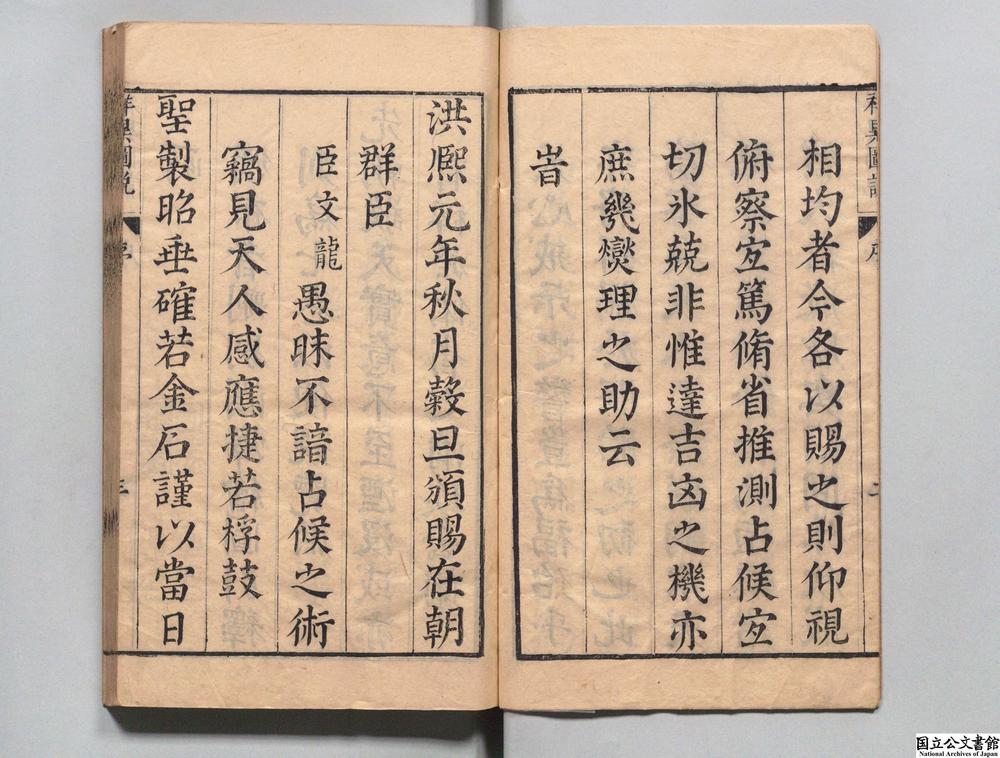 相均者今各以賜之則仰視
俯察宜篤脩省推測占候宜
切氷兢非惟達吉凶之機亦
庶幾爕理之助云
旹
洪熈元年秋月榖旦頒賜在朝
群臣
臣文龍愚昧不諳占候之術
竊見天人感應捷若桴鼓
聖製昭垂確若金石謹以當日
祥異圖說
序
国立公文書館
National Archives of Japan